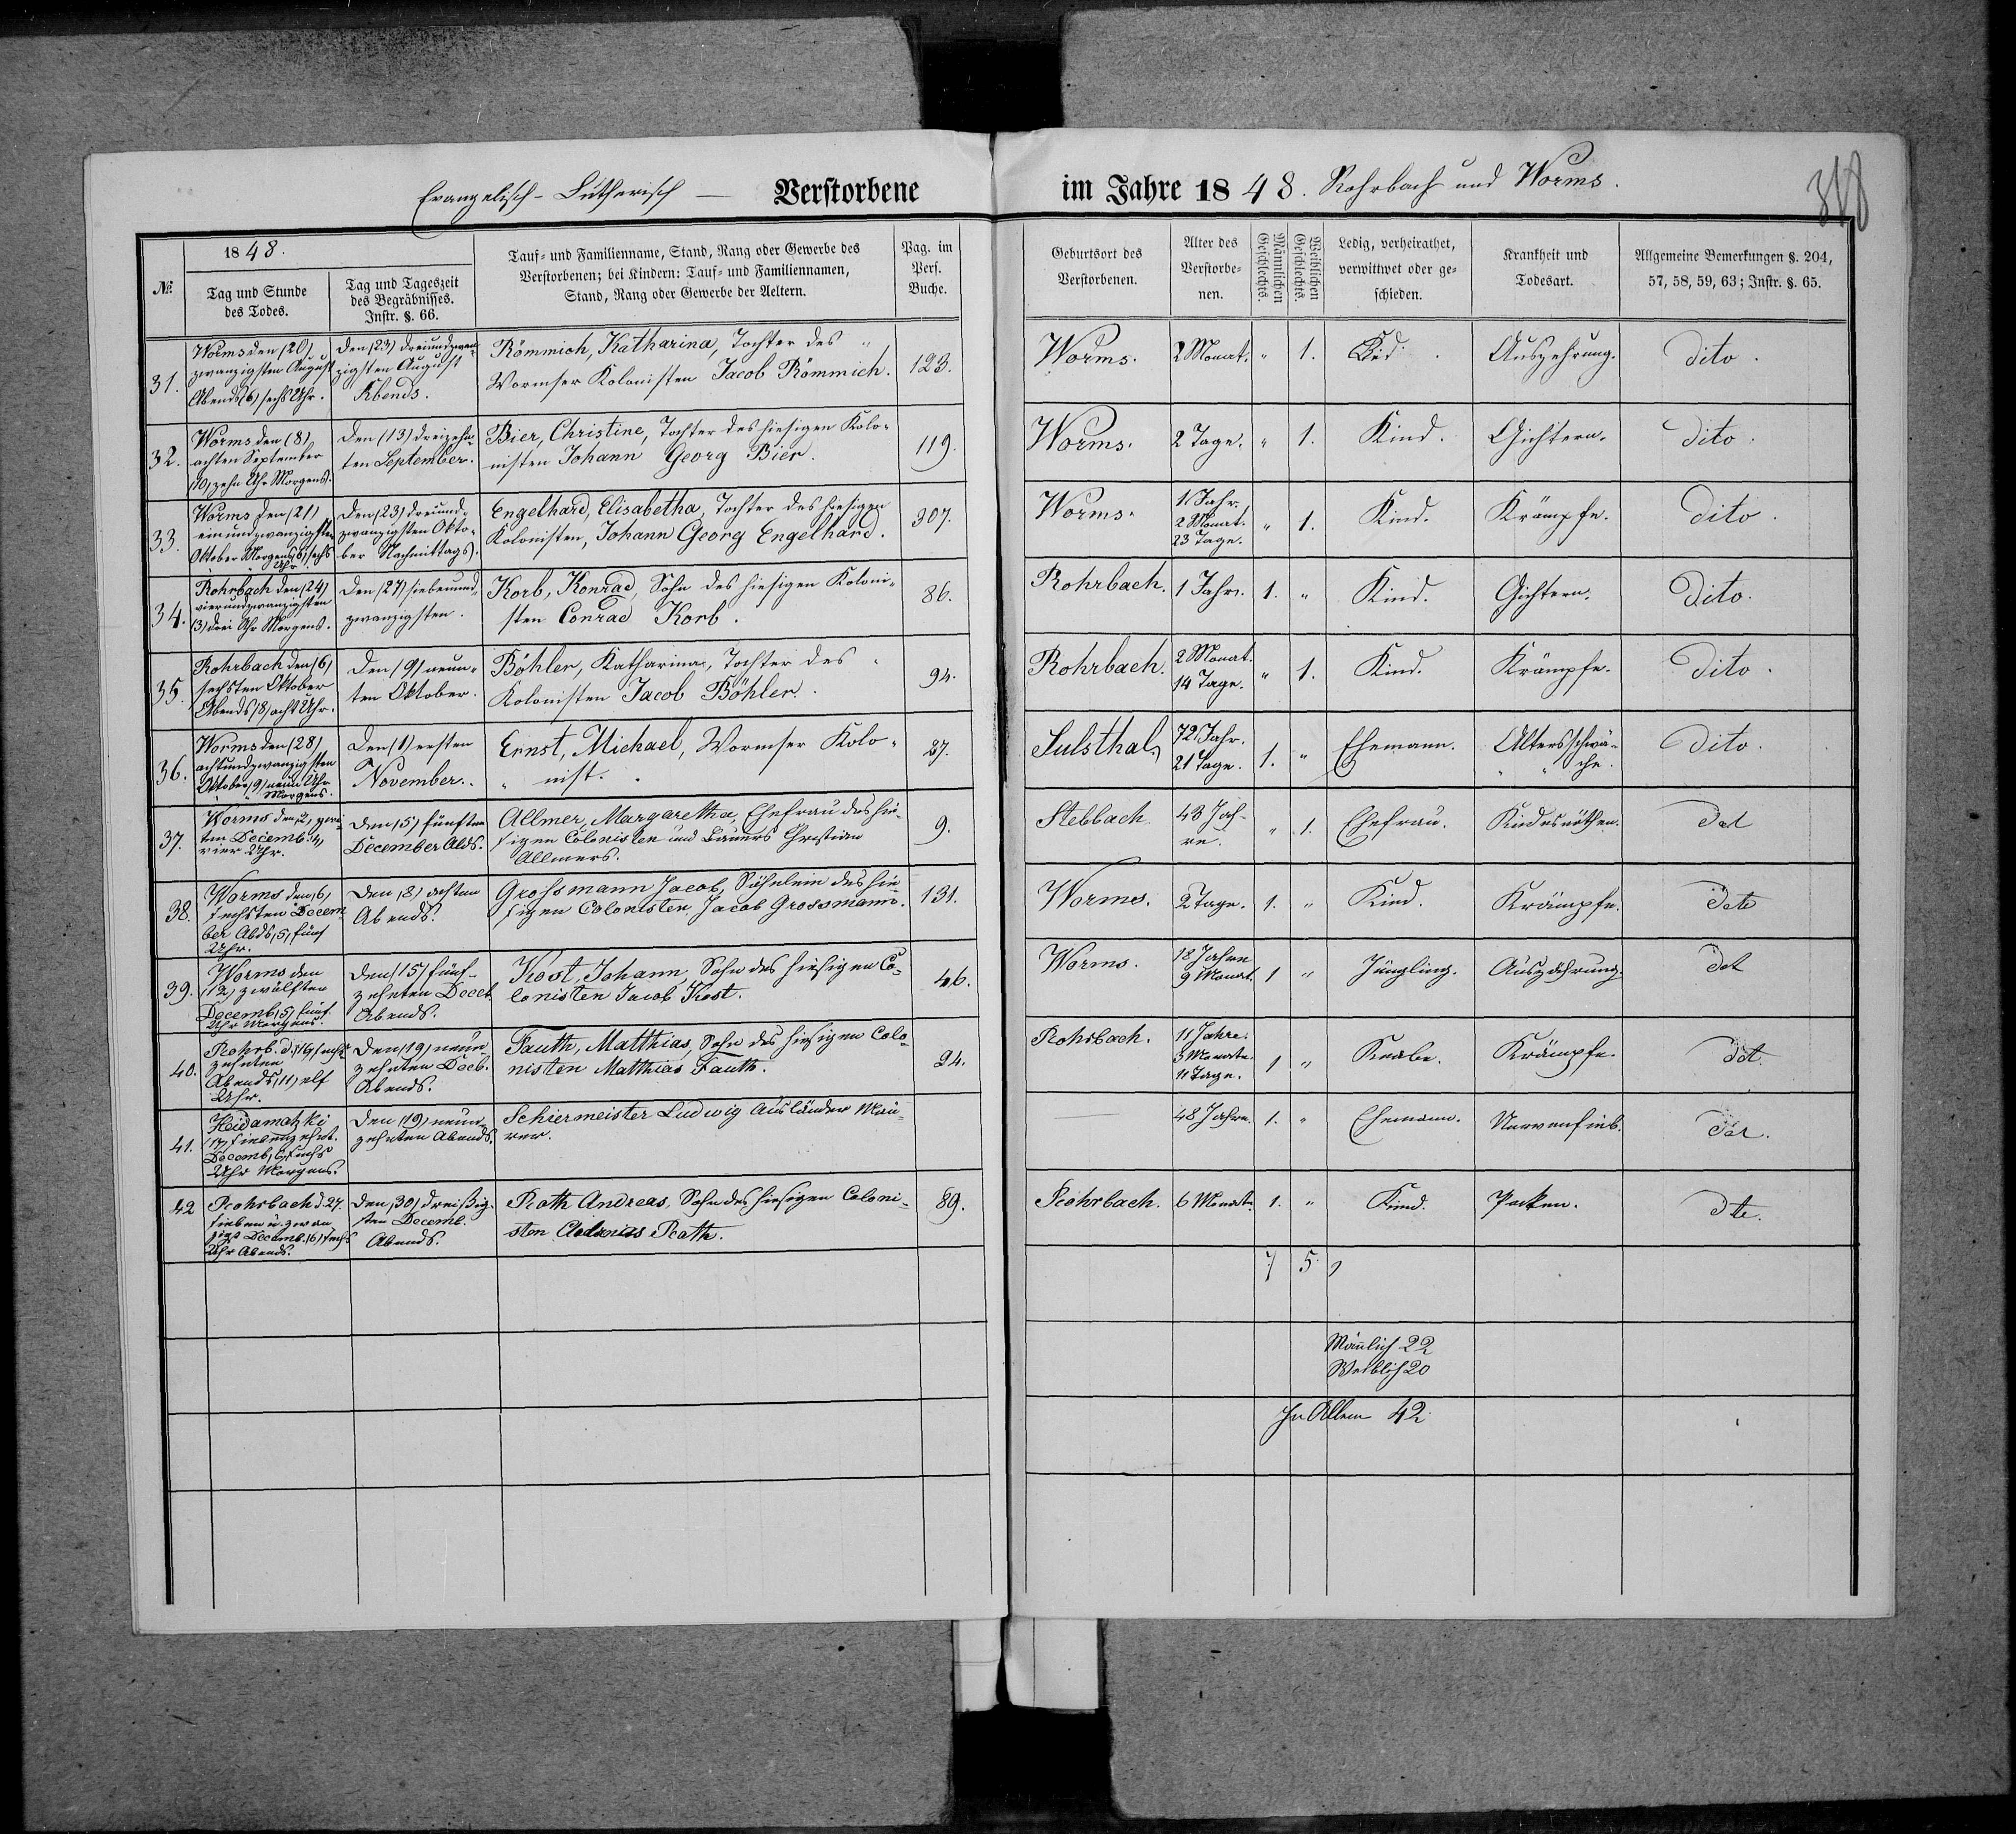 Evangelisch-Lutherisch — Verstorbene im Jahre 1848. Rohrbach und Worms.
318
№.
1848.
Tag und Stunde
des Todes.
Tag und Tageszeit
des Begräbnisses.
Instr. §. 66.
Tauf- und Familienname, Stand, Rang oder Gewerbe des
Verstorbenen; bei Kindern: Tauf- und Familiennamen,
Stand, Rang oder Gewerbe der Aeltern.
Pag. im
Pers.
Buche.
Geburtsort des
Verstorbenen.
Alter des
Verstorbe-
nen.
Männlichen
Geschlechts.
Weiblichen
Geschlechts.
Ledig, verheirathet,
verwittwet oder ge-
schieden.
Krankheit und
Todesart.
Allgemeine Bemerkungen §. 204,
57, 58, 59, 63; Instr. §. 65.
31.
Worms den (20)
zwanzigsten August
Abends (6) sechs Uhr.
Den (23) dreiundzwan-
zigsten August
Abends.
Römmich, Katharina, Tochter des "
Wormser Kolonisten Jacob Römmich.
123.
Worms.
2 Monat.
" 1.
Auszehrung.
dito.
32.
Worms den (8)
achten September
(10) zehn Uhr Morgens.
Den (13) dreizehn-
ten September.
Bier, Christine, Tochter des hiesigen Kolo-
nisten Johann Georg Bier.
119.
Worms.
2 Tage.
" 1.
Kind.
Gichtern.
dito.
33.
Worms den (21)
einundzwanzigsten
Oktober Morgens (6) sechs
Uhr
Den (23) dreiund-
zwanzigsten Okto-
ber Nachmittags.
Engelhard, Elisabetha, Tochter des hiesigen
Kolonisten, Johann Georg Engelhard.
307.
Worms.
1 Jahr.
2 Monat.
23 Tage.
" 1.
Kind.
Krämpfe.
dito.
34.
Rohrbach den (24)
vierundzwanzigsten
(3) drei Uhr Morgens.
Den (27) siebenund-
zwanzigsten.
Korb, Konrad, Sohn des hiesigen Koloni-
sten Conrad Korb.
86.
Rohrbach.
1 Jahr.
1. "
Kind.
Gichtern.
dito.
35.
Rohrbach den (6)
sechsten Oktober
Abends (8) acht Uhr.
Den (9) neun-
ten Oktober.
Böhler, Katharina, Tochter des "
Kolonisten Jacob Böhler.
94.
Rohrbach.
2 Monat.
14 Tage.
" 1.
Kind.
Krämpfe.
dito.
36.
Worms den (28)
achtundzwanzigsten
Oktober (9) neun Uhr
" " Morgens.
Den (1) ersten
November.
Ernst, Michael, Wormser Kolo-
" nist.
27.
Sulsthal,
72 Jahr.
21 Tage.
1. "
Ehemann.
Altersschwä-
" " che.
dito.
37.
Worms den (2) zwei-
ten Decemb. (4)
vier Uhr.
Den (5) fünften
December Abds.
Allmer, Margaretha, Ehefrau des hie-
sigen Colonisten und Bauers Christian
Allmers.
9.
Stebbach.
43 Jah-
re.
" 1.
Ehefrau.
Kindesnöthen.
det
38.
Worms den (6)
sechsten Decem-
ber Abds. (5) fünf
Uhr.
Den (8) achten
Abends.
Grossmann Jacob, Söhnlein des hie-
sigen Colonisten Jacob Grossmann.
131.
Worms.
2 Tage.
1. "
Kind.
Krämpfe.
deto
39.
Worms den
(12) zwölften
Decemb. (5) fünf
Uhr Morgens.
Den (15) fünf-
zehnten Decet
Abends.
Kost, Johann, Sohn des hiesigen Co-
lonisten Jacob Kost.
46.
Worms.
18 Jahre
9 Monat.
1 "
Jüngling.
Auszährung.
det
40.
Rohrb. d. (16) sech-
zehnten
Abends, (11) elf
Uhr.
Den (19) neun-
zehnten Decb.
Abends.
Fauth, Matthias, Sohn des hiesigen Colo-
nisten Matthias Fauth.
24.
Rohrbach.
11 Jahre.
3 Monate.
11 Tage.
1 "
Knabe.
Krämpfe.
det.
41.
Heidamatzki
(17) siebenzehnt.
Decemb. (6) sechs
Uhr Morgens.
Den (19) neun-
zehnten Abends.
Schiermeister Ludwig Ausländer Mau-
rer.
48 Jahre.
1. "
Ehemann.
Nervenfieb.
42
Rohrbach d. 27.
sieben u. zwan
zigs Decemb. (6) sechs
Uhr Abends.
Den (30) dreißig-
sten Decemb.
Abends.
Roth Andreas, Sohn des hiesigen Coloni-
sten Andreas Roth.
89.
Rohrbach.
6 Monate.
1. "
Kind.
Pocken.
dte.
7 5
Mänlich 22
Weiblich 20
In Allem 42.